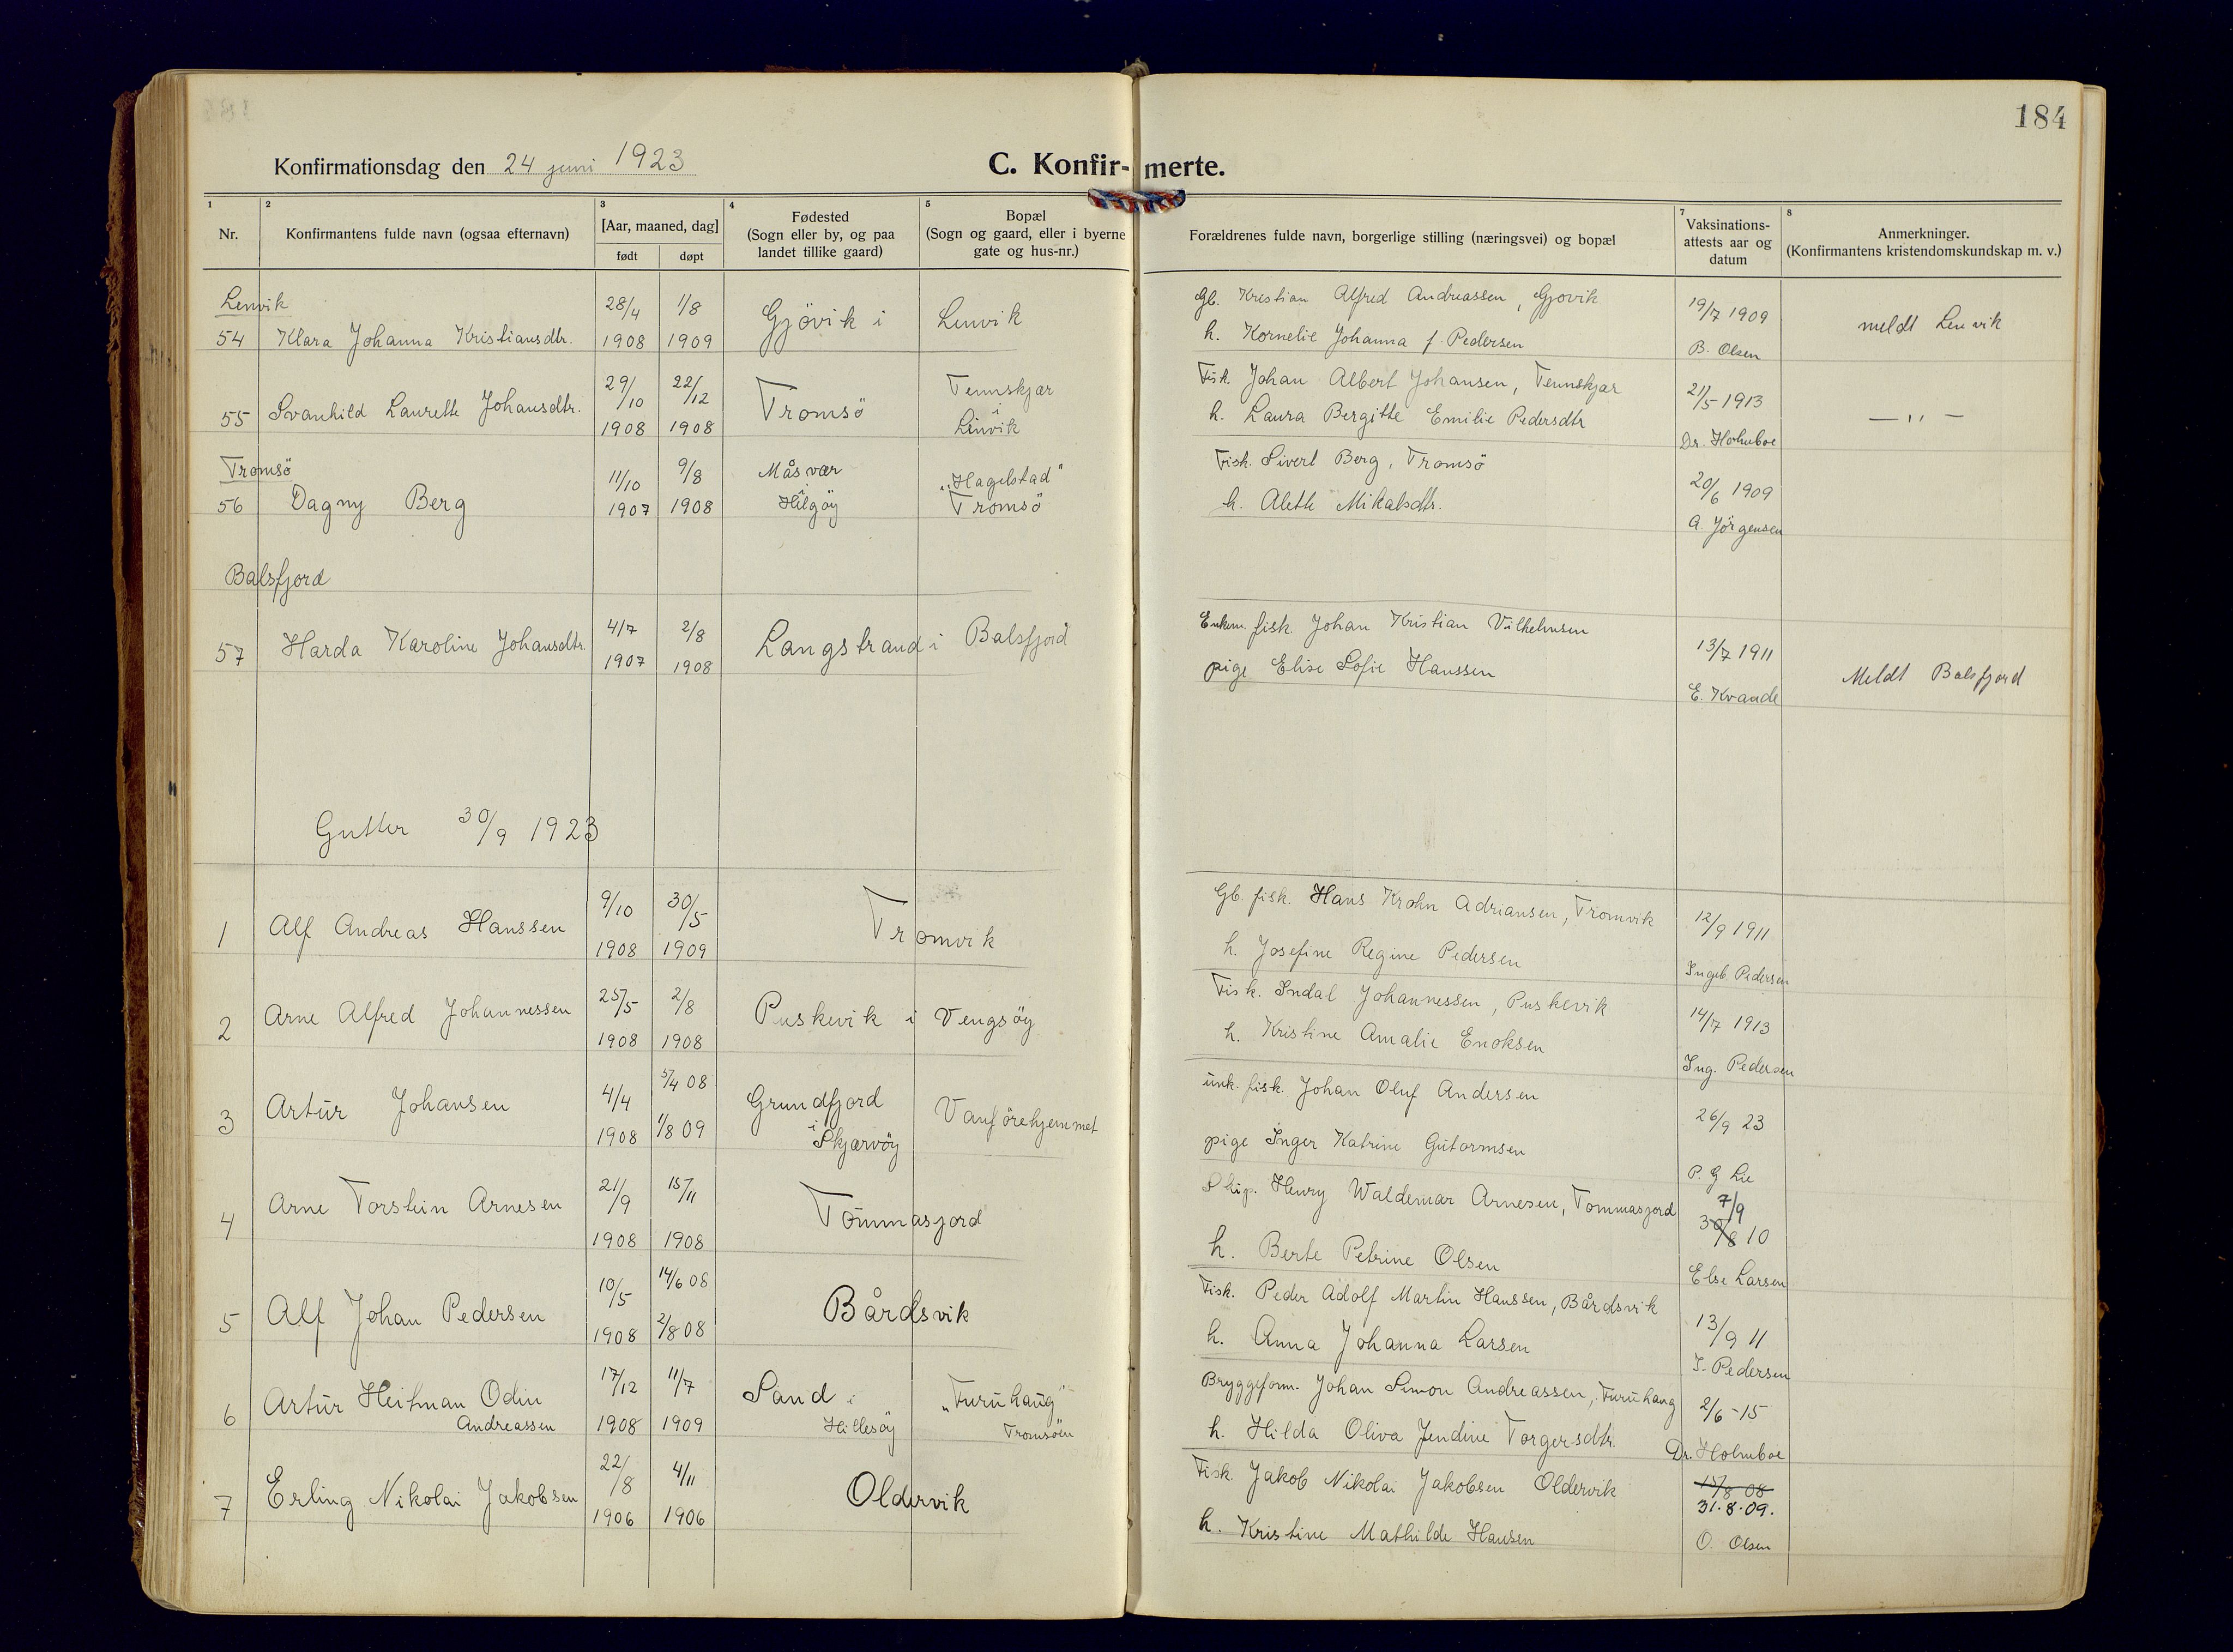 184
Konfirmationsdag den 24 juni 1923
C. Konfir-merte.
1 2 3 4 5 7 8
Nr.
Konfirmantens fulde navn (ogsaa efternavn)
[Aar, maaned, dag]
født døpt
Fødested
(Sogn eller by, og paa
landet tillike gaard)
Bopæl
(Sogn og gaard, eller i byerne
gate og hus-nr.)
Forældrenes fulde navn, borgerlige stilling (næringsvei) og bopæl
Vaksinations-
attests aar og
datum
Anmerkninger.
(Konfirmantens kristendomskundskap m. v.)
Lenvik 28/4 1/8 Gjövik i Lenvik Gb. Kristian Alfred Andreassen, Gjovik 19/7 1909 meldt Lenvik
54 Klara Johanna Kristiansdtr. 1908 1909 h. Kornelie Johanna f. Pedersen B. Olsen
29/10 22/12 Tromsö Tennskjær Fisk. Johan Albert Johansen, Tennskjar 21/5 1913 — " —
55 Svanhild Laurette Johansdtr. 1908 1908 i Lenvik h. Laura Bergitte Emilie Pedersdtr Dr. Holmboe
Tromsö 11/10 9/8 Måsvær „Hagelstad" Fisk. Sivert Berg, Tromsö 20/6 1909
56 Dagny Berg 1907 1908 i Hilgöy Tromsö h. Alette Mikalsdtr. A. Jörgensen
Balsfjord
4/7 2/8 Langstrand i Balsfjord Enkem. fisk. Johan Kristian Vilhelmsen 13/7 1911 Meldt Balsfjord
57 Harda Karoline Johansdtr. 1907 1908 pige Elise Sofie Hanssen E. Kvande
Gutter 30/9 1923
9/10 30/5 Tromvik Gb. fisk. Hans Krohn Adriansen, Tromvik 12/9 1911
1 Alf Andreas Hanssen 1908 1909 h. Josefine Regine Pedersen Ingeb. Pedersen
25/5 2/8 Puskevik i Vengsöy Fisk. Indal Johannessen, Puskevik 14/7 1913
2 Arne Alfred Johannessen 1908 1908 h. Kristine Amalie Enoksen Ing. Pedersen
4/4 5/4 08 Grundfjord Vanförehjemmet unk. fisk. Johan Oluf Andersen 26/9 23
3 Artur Johansen 1908 1/8 09 i Skjærvöy pige Inger Katrine Gutormsen P. G Lie
21/9 15/11 Tommasjord Henry Waldemar Arnesen, Tommasjord 7/9 30/8 10
4 Arne Torstein Arnesen 1908 1908 h. Berte Petrine Olsen Else Larsen
10/5 14/6 08 Bårdsvik Fisk. Peder Adolf Martin Hanssen, Bårdsvik 13/9 11
5 Alf Johan Pedersen 1908 2/8 08 h. Anna Johanna Larsen I. Pedersen
17/12 11/7 Sand i „Furuhaug" Bryggeform. Johan Simon Andreassen, Furuhaug 2/6-15
6 Artur Heitman Odin Andreassen 1908 1909 Hillesöy Tromsöen h. Hilda Oliva Jendine Torgersdtr. Dr. Holmboe
22/8 4/11 Oldervik Fisk. Jakob Nikolai Jakobsen Oldervik 15/8 08 31.8.09.
7 Erling Nikolai Jakobsen 1906 1906 h. Kristine Mathilde Hansen O. Olsen